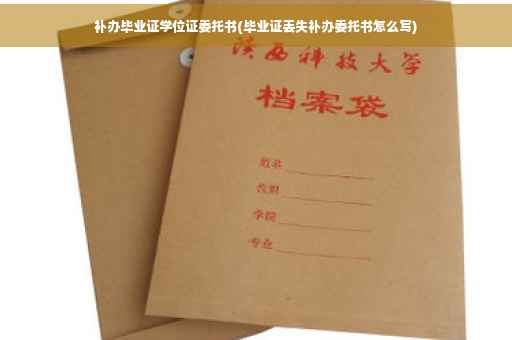 补办毕业证学位证委托书(毕业证丢失补办委托书怎么写)
陕西科技大学
档案袋
姓名
学院
专业